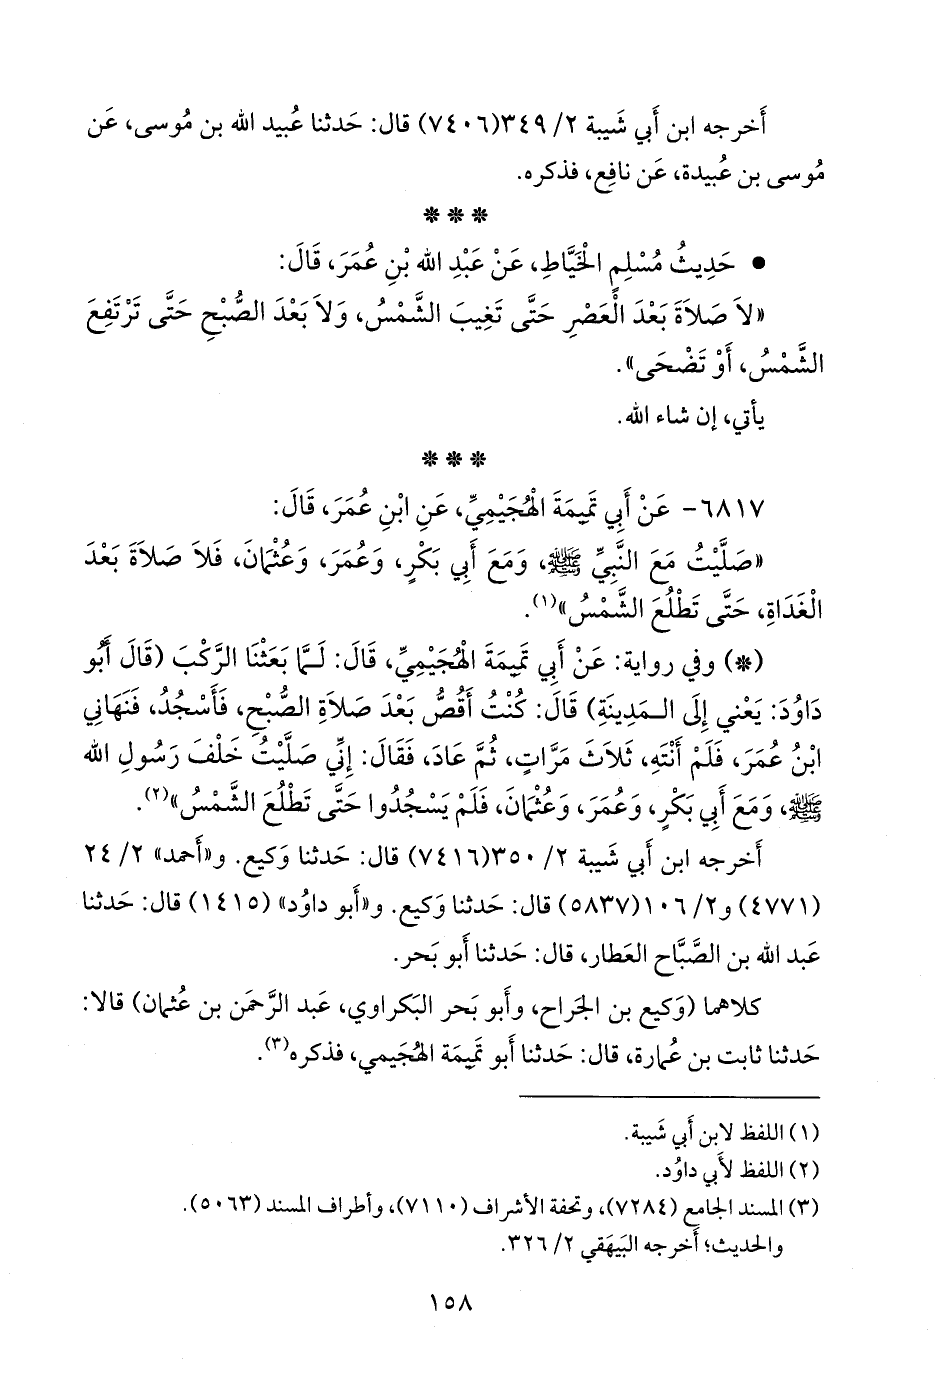 أَخرجه ابن أَبي شَيبة ٢/ ٣٤٩(٧٤٠٦) قال: حَدثنا عُبيد الله بن مُوسى، عَن
مُوسى بن عُبيدة، عَن نافِع، فذكره.
* * *
• حَدِيثُ مُسْلِمٍ الْخَيَّاطِ، عَنْ عَبْدِ الله بْنِ عُمَرَ، قَالَ:
«لاَ صَلاَةَ بَعْدَ الْعَصْرِ حَتَّى تَغِيبَ الشَّمْسُ، وَلاَ بَعْدَ الصُّبْحِ حَتَّى تَرْتَفِعَ
الشَّمْسُ، أَوْ تَضْحَى».
يأتي، إن شاء الله.
* * *
٦٨١٧- عَنْ أَبِي تَمِيمَةَ الْهُجَيْمِيِّ، عَنِ ابْنِ عُمَرَ، قَالَ:
«صَلَّيْتُ مَعَ النَّبِيِّ ﷺ، وَمَعَ أَبِي بَكْرٍ، وَعُمَرَ، وَعُثْمَانَ، فَلاَ صَلاَةَ بَعْدَ
الْغَدَاةِ، حَتَّى تَطْلُعَ الشَّمْسُ»(١).
(*) وفي رواية: عَنْ أَبِي تَمِيمَةَ الْهُجَيْمِيِّ، قَالَ: لَمَّا بَعَثْنَا الرَّكْبَ (قَالَ أَبُو
دَاوُدَ: يَعْنِي إِلَى الـمَدِينَةِ) قَالَ: كُنْتُ أَقُصُّ بَعْدَ صَلاَةِ الصُّبْحِ، فَأَسْجُدُ، فَنَهَانِي
ابْنُ عُمَرَ، فَلَمْ أَنْتَهِ، ثَلاَثَ مَرَّاتٍ، ثُمَّ عَادَ، فَقَالَ: إِنِّي صَلَّيْتُ خَلْفَ رَسُولِ الله
ﷺ، وَمَعَ أَبِي بَكْرٍ، وَعُمَرَ، وَعُثْمَانَ، فَلَمْ يَسْجُدُوا حَتَّى تَطْلُعَ الشَّمْسُ»(٢).
أَخرجه ابن أَبي شَيبة ٢/ ٣٥٠(٧٤١٦) قال: حَدثنا وَكيع. و«أَحمد» ٢/ ٢٤
(٤٧٧١) و٢/ ١٠٦(٥٨٣٧) قال: حَدثنا وَكيع. و«أَبو داوُد» (١٤١٥) قال: حَدثنا
عَبد الله بن الصَّبَّاح العَطار، قال: حَدثنا أَبو بَحر.
كلاهما (وَكيع بن الجَراح، وأَبو بَحر البَكراوي، عَبد الرَّحمَن بن عُثمان) قالا:
حَدثنا ثابت بن عُمارة، قال: حَدثنا أَبو تَمِيمَة الهُجَيمي، فذكره(٣).
(١) اللفظ لابن أَبي شَيبة.
(٢) اللفظ لأَبي داوُد.
(٣) المسند الجامع (٧٢٨٤)، وتحفة الأشراف (٧١١٠)، وأطراف المسند (٥٠٦٣).
والحديث؛ أَخرجه البَيهَقي ٢/ ٣٢٦.
١٥٨